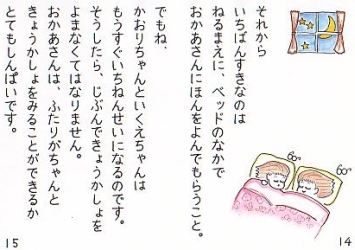 それから
いちばんすきなのは
ねるまえに、ベッドのなかで
おかあさんにほんをよんでもらうこと。
14
でもね、
かおりちゃんといくえちゃんは
もうすぐいちねんせいになるのです。
そうしたら、じぶんできょうかしょを
よまなくてはなりません。
おかあさんは、ふたりがちゃんと
きょうかしょをみることができるか
とてもしんぱいです。
15